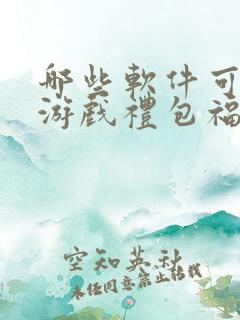 哪些軟件可
游戲禮包福
空知英秋
未经同意禁止转载